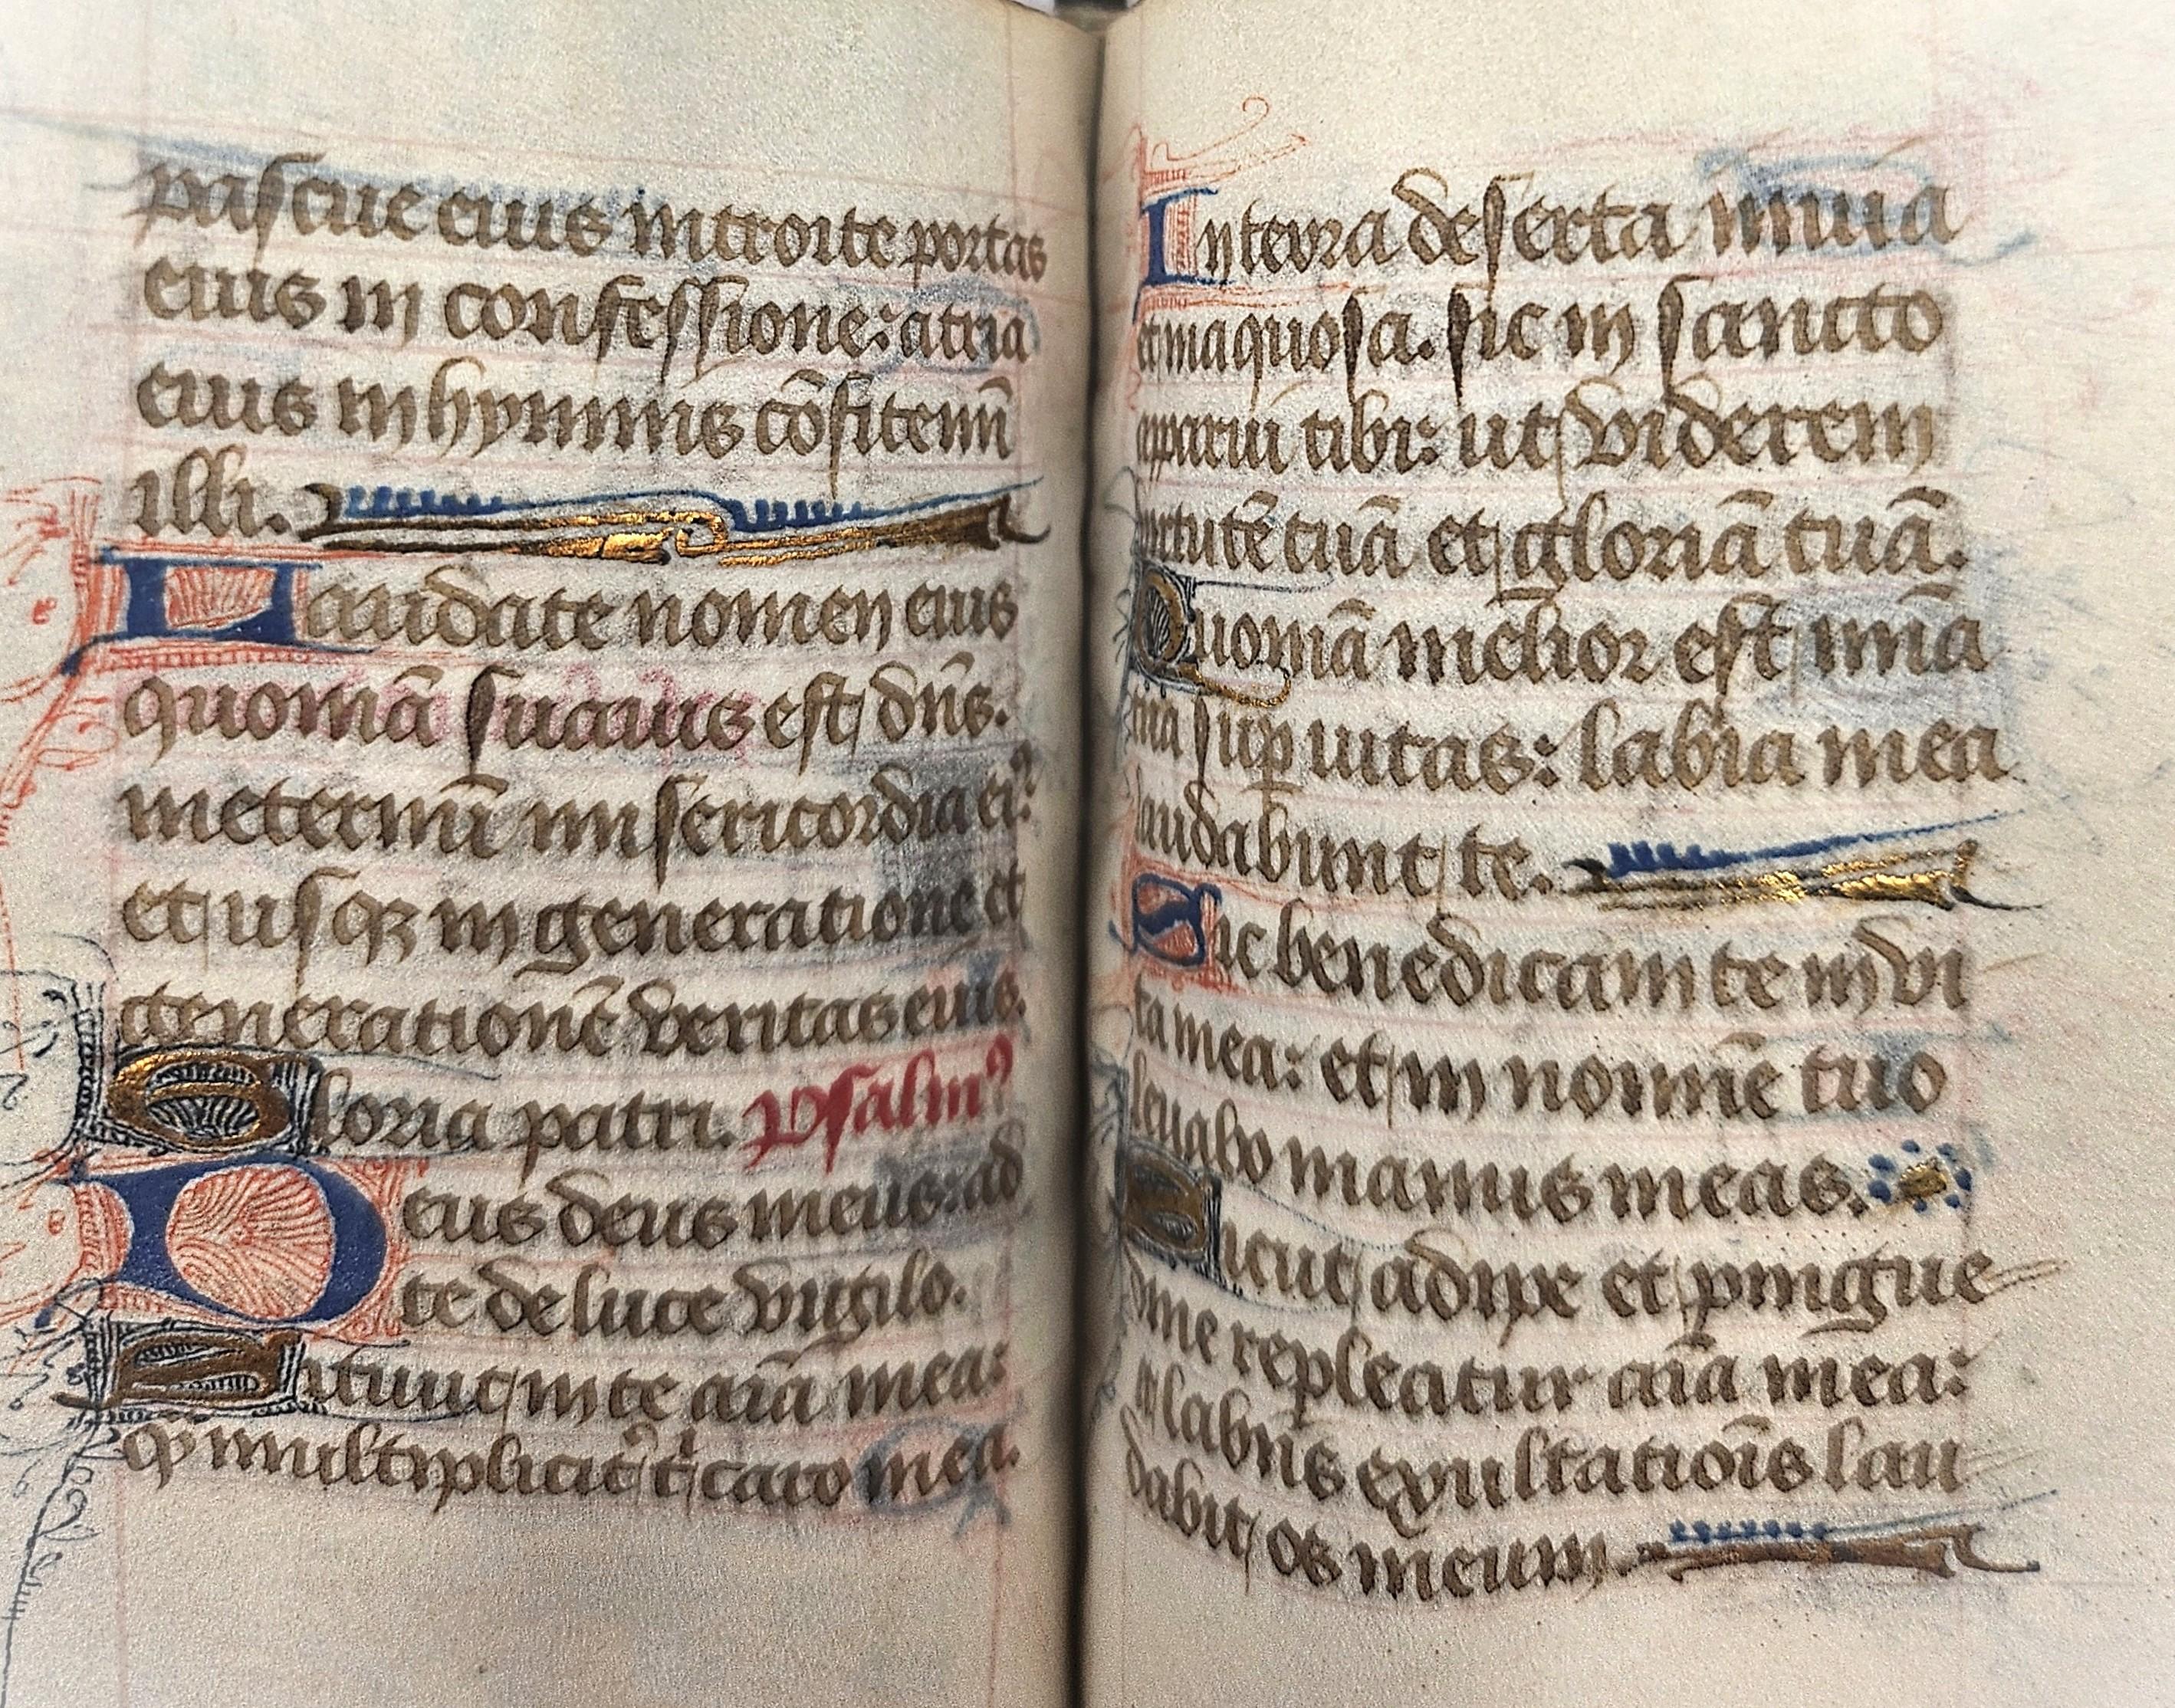 pascue eius introite portas
eius in confessione: atria
eius in hymnis cōfitemī
illi.
Laudate nomen eius
quoniā suauis est dn̄s.
in eternū misericordia ei⁹
et usqꝫ in generatione et
generationē veritas eius.
Gloria patri. Psalm⁹
Deus deus meus: ad
te de luce vigilo.
Sitiuit in te aīa mea:
ꝙ multiplicit̾ t¹ caro mea.
In terra deserta inuia
et inaquosa. sic in sancto
apparui tibi: ut viderem
uirtutē tuā et gloriā tuā.
Quoniā melior est mīa
tua suꝑ uitas: labia mea
laudabunt te.
Sic benedicam te in vi
ta mea: et in nomīe tuo
leuabo manus meas.
Sicut adipe et pingue
dine repleatur aīa mea:
et labiis exultatiōis lau
dabit os meum.